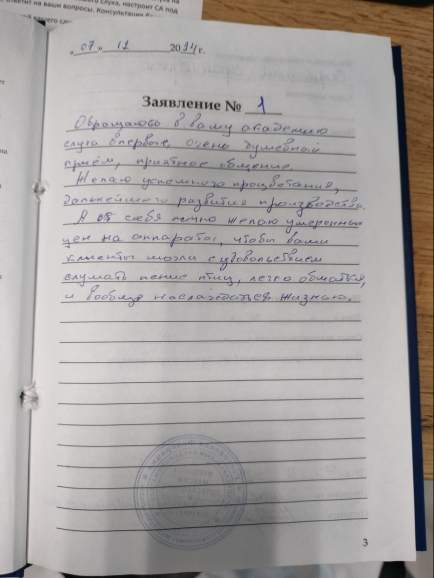 ответит на ваши вопросы. Консультация
слуха, настроит СА под
„07" 11 2014 г.
Заявление № 1
Обращаюсь в вашу академию
слуха впервые, очень душевный
приём, приятное общение.
Желаю успешного процветания,
дальнейшего развития производства.
А от себя лично желаю умеренных
цен на аппараты, чтобы ваши
клиенты могли с удовольствием
слушать пение птиц, легко общаться,
и вообще наслаждаться жизнью.
3